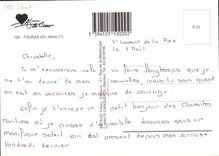 109 - FOURAS (Ch. Mme 17)
St Laurent de la Prée
le 3 Août
Christelle,
Tu m'excuseras cela fait un faire longtemps que je
ne t'ai donné de mes nouvelles, mais tu sais quand
on est en vacances je manque de courage.
Enfin je t'envoie un petit bonjour des Charentes
maritime où je passe d'agréable vacances sous un
magnifique soleil qui est présent depuis mon arrivée
Vendredi dernier